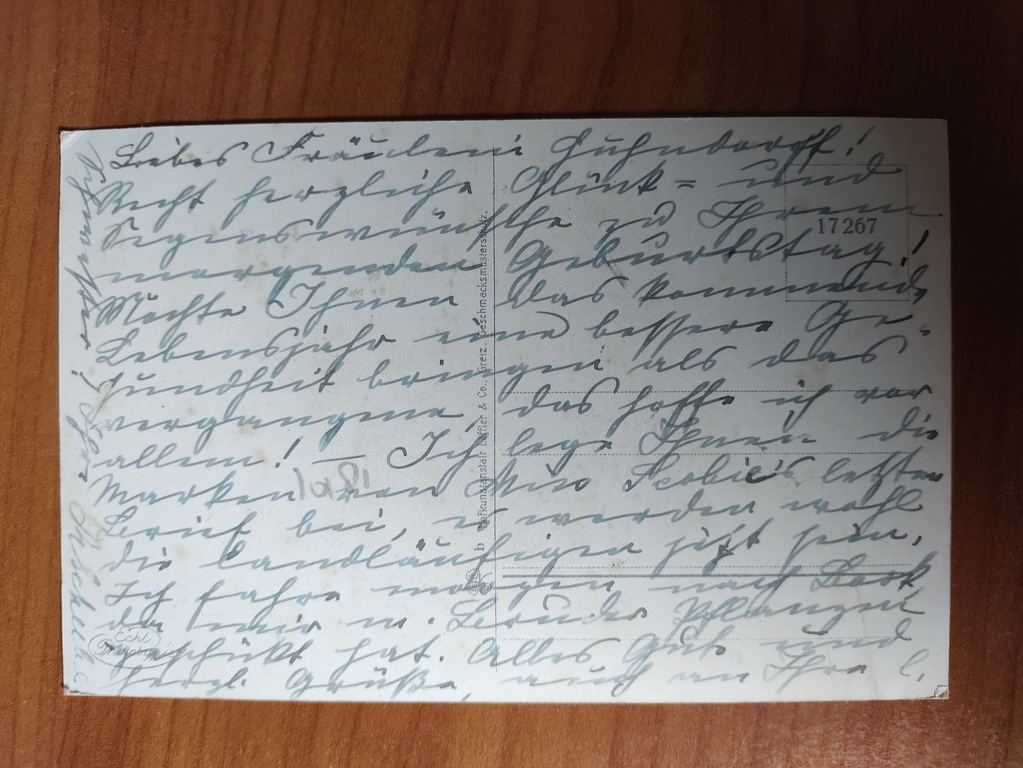 Liebes Fräulein Huhndorff!
Recht herzliche Glück= und
Segenswünsche zu Ihrem
morgenden Geburtstag!
Möchte Ihnen das kommende
Lebensjahr eine bessere Ge-
sundheit bringen als das
vergangene, das hoffe ich vor
allem! — Ich lege Ihnen die
Marken von Miss letzten
Brief bei, es werden wohl
die landläufigen sein.
Ich fahre morgen nach
da mir m. Bruder Pflanzen
geschickt hat. Alles Gute und
herzl. Grüße, auch an Ihre l.
Schwester! Ihre
17267
b Tiefkunstanstalt Löffler & Co., Greiz. Geschmacksmusterschutz.
Echt